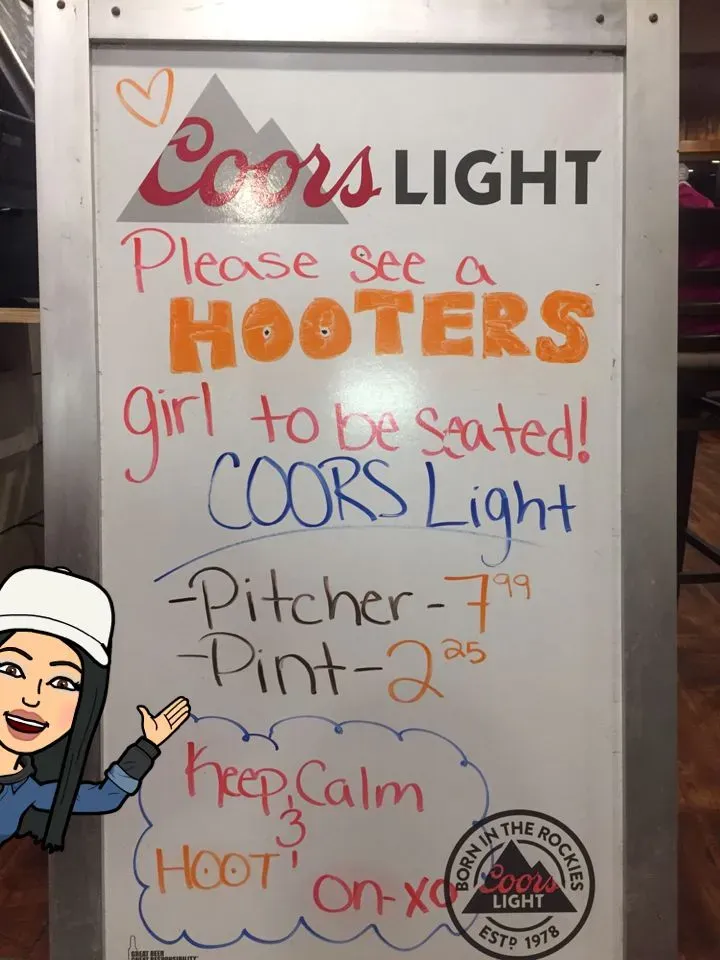 Coors LIGHT
Please see a
HOOTERS
girl to be seated!
COORS Light
-Pitcher-7.99
-Pint-2.25
Keep Calm
&
HOOT
on-xo
BORN IN THE ROCKIES
Coors
LIGHT
ESTD 1978
GREAT BEER
GREAT RESPONSIBILITY